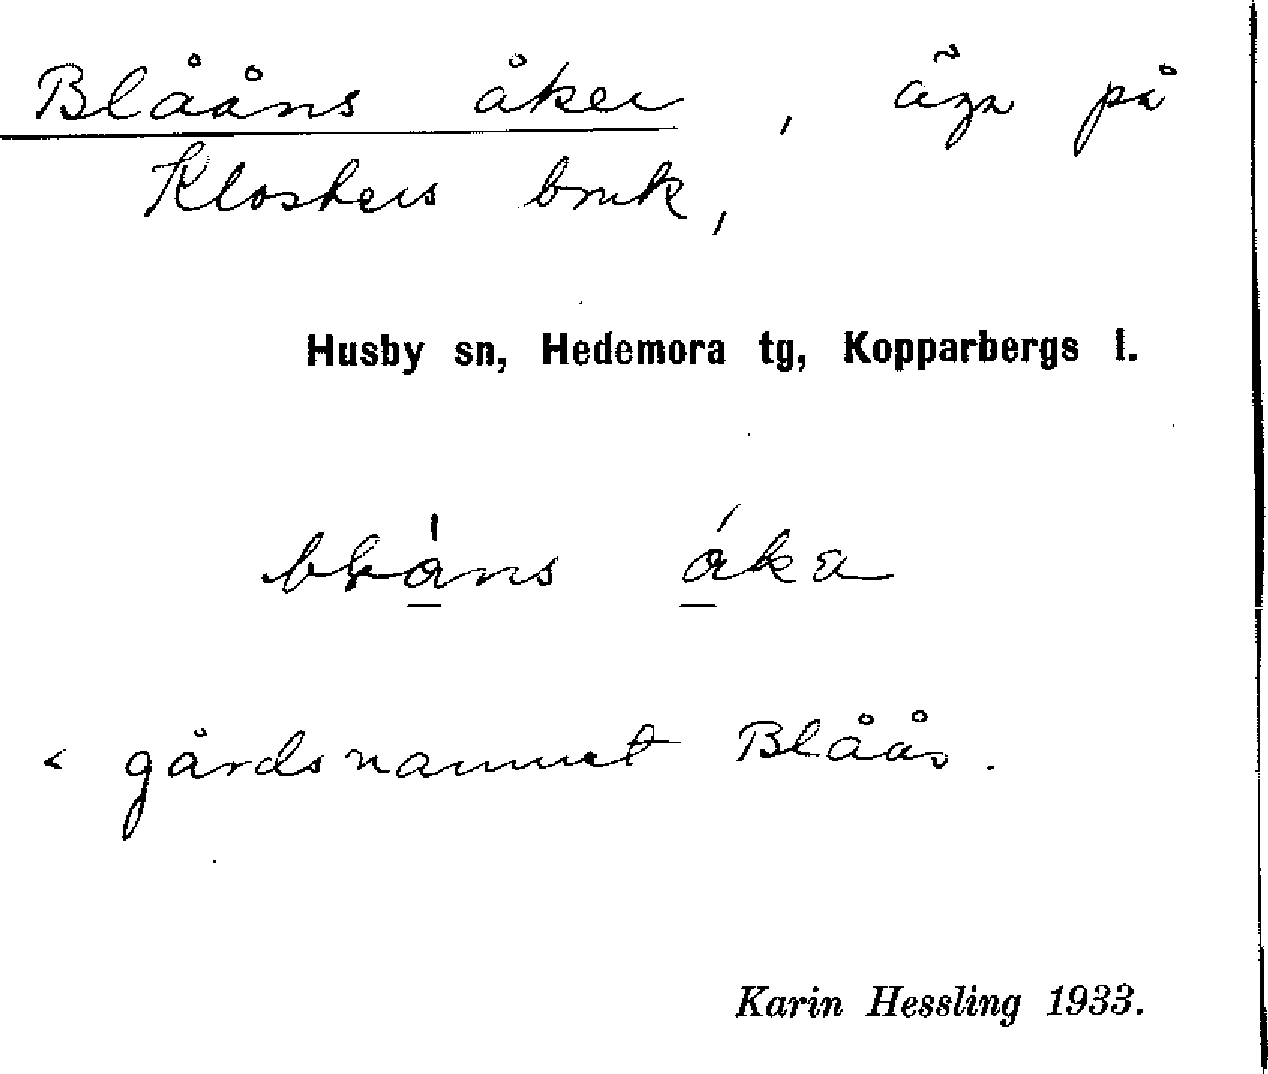 Blååns åker, äga på
Klosters bruk,
Husby sn, Hedemora tg, Kopparbergs l.
åka
< gårdsnamnet Blåås.
Karin Hessling 1933.